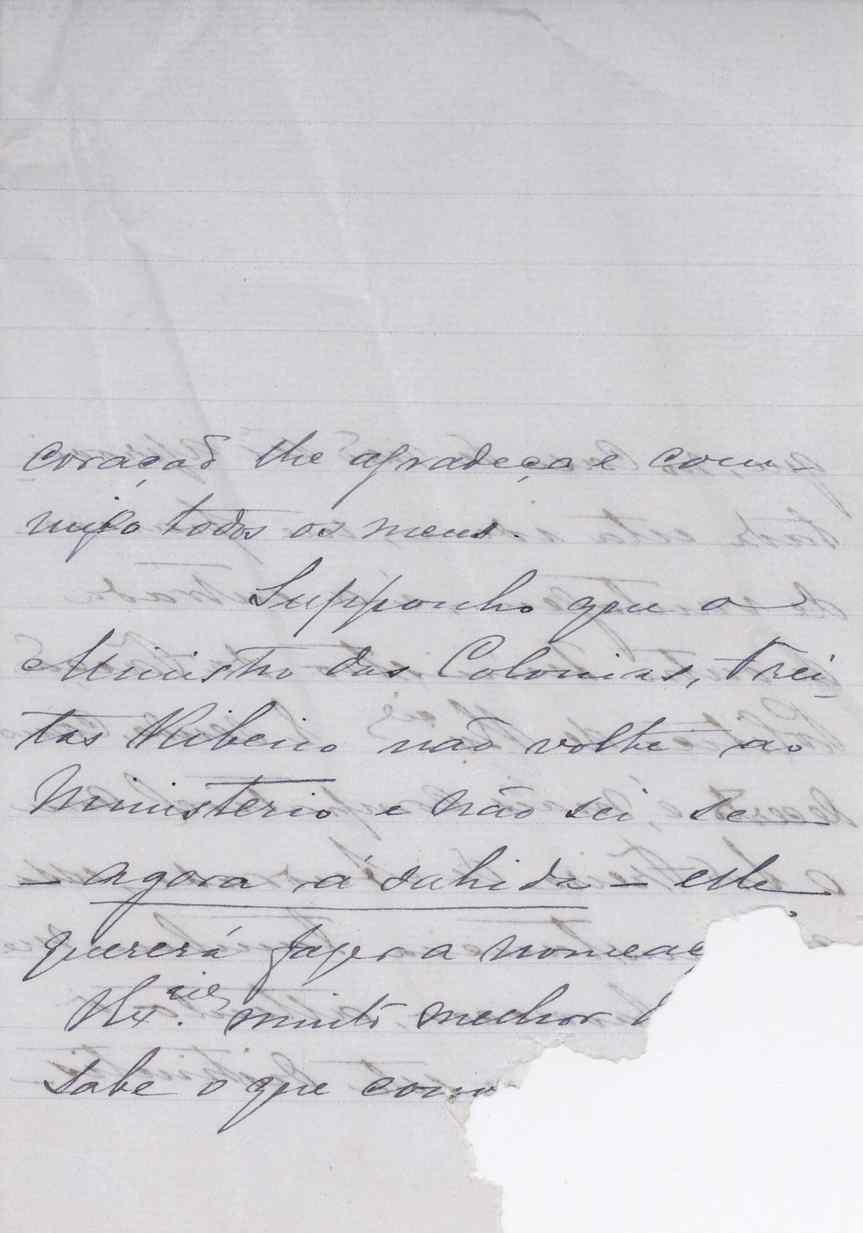 coração lhe agradeça e com-
migo todos os meus.
Supponho que o
Ministro das Colonias, Frei-
tas Ribeiro não volte ao
Ministerio e não sei se
- agora á sahida - elle
quererá fazer a nomeaç
V. Ex.cia muito melhor
sabe o que conv